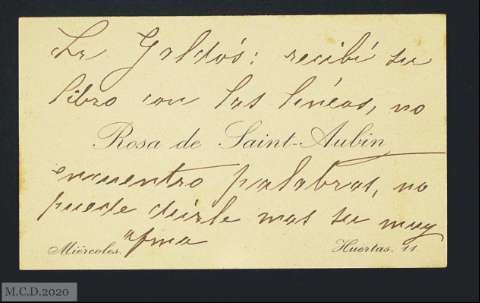 Sr Galdós: recibí su
libro con las lineas, no
Rosa de Saint-Aubin
encuentro palabras, no
puede decirle mas su muy
afma
Miércoles.
Huertas, 11
M.C.D.2020